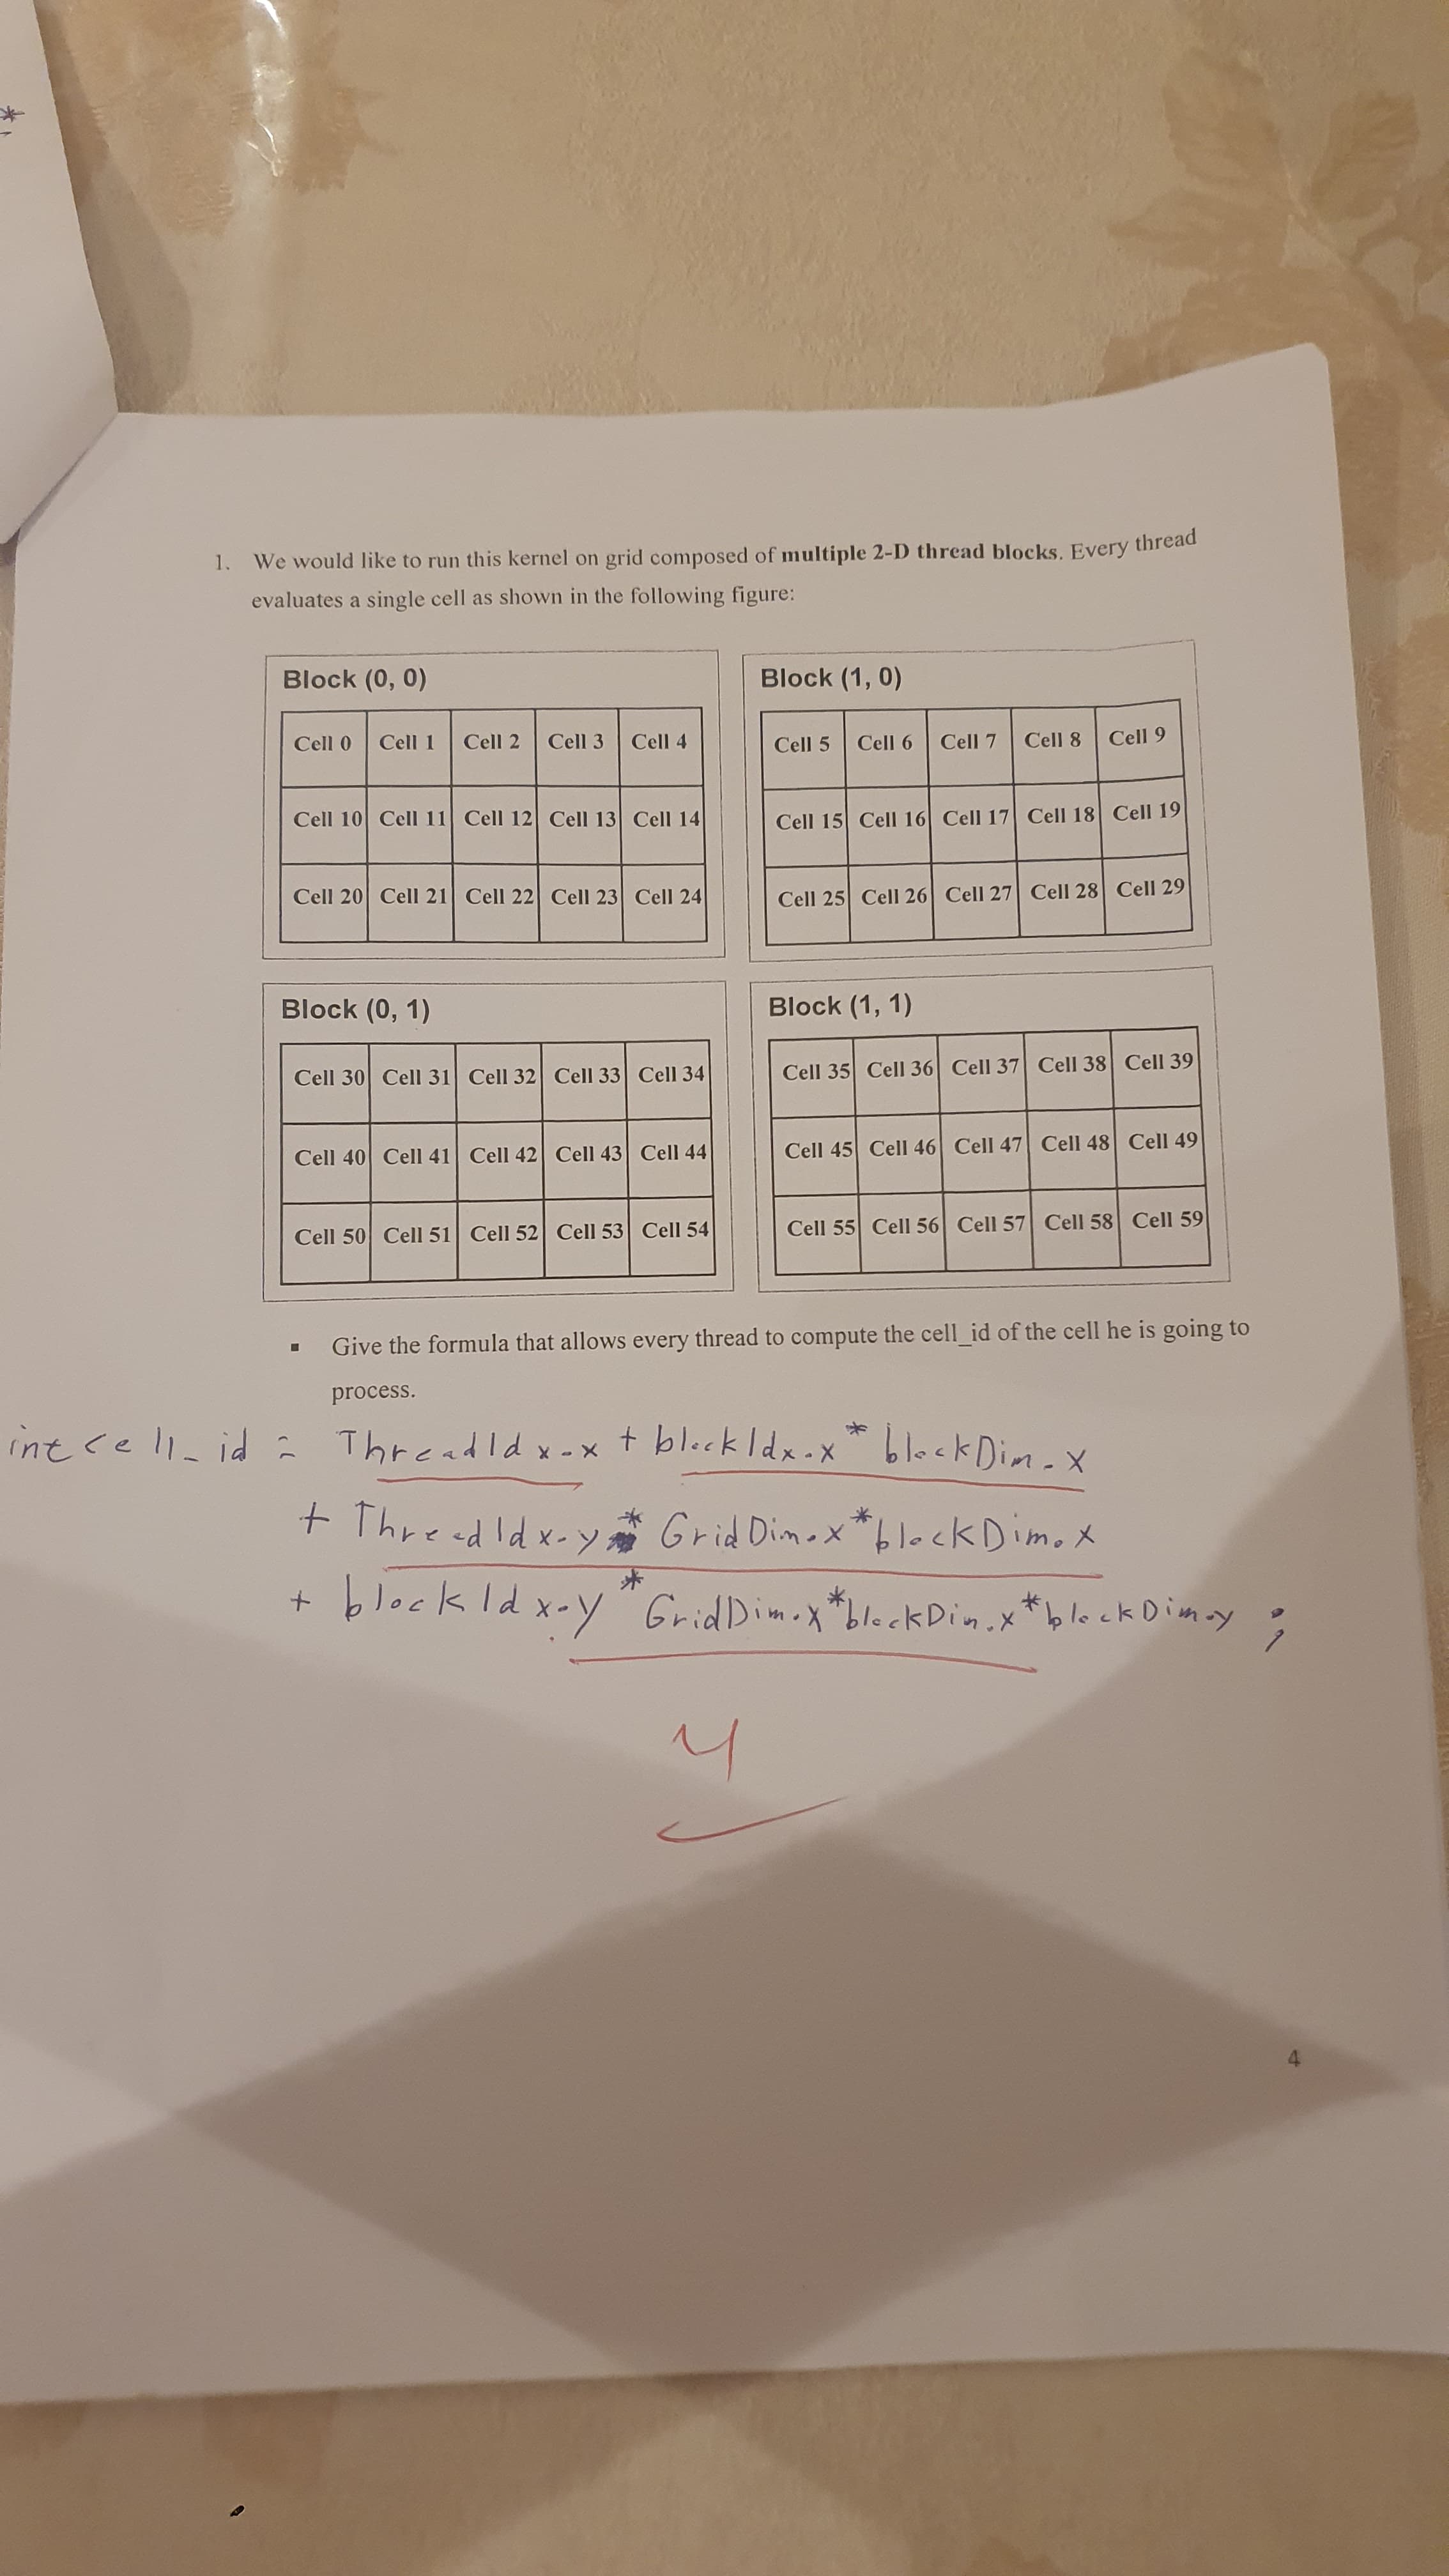 *
1. We would like to run this kernel on grid composed of multiple 2-D thread blocks. Every thread
evaluates a single cell as shown in the following figure:
Block (0, 0)
Cell 0 Cell 1 Cell 2 Cell 3 Cell 4
Cell 10 Cell 11 Cell 12 Cell 13 Cell 14
Cell 20 Cell 21 Cell 22 Cell 23 Cell 24
Block (1, 0)
Cell 5 Cell 6 Cell 7 Cell 8 Cell 9
Cell 15 Cell 16 Cell 17 Cell 18 Cell 19
Cell 25 Cell 26 Cell 27 Cell 28 Cell 29
Block (0, 1)
Cell 30 Cell 31 Cell 32 Cell 33 Cell 34
Cell 40 Cell 41 Cell 42 Cell 43 Cell 44
Cell 50 Cell 51 Cell 52 Cell 53 Cell 54
Block (1, 1)
Cell 35 Cell 36 Cell 37 Cell 38 Cell 39
Cell 45 Cell 46 Cell 47 Cell 48 Cell 49
Cell 55 Cell 56 Cell 57 Cell 58 Cell 59
▪ Give the formula that allows every thread to compute the cell_id of the cell he is going to
process.
int cell_id = ThreadIdx.x + blockIdx.x * blockDim.x
+ ThreadIdx.y * GridDim.x * blockDim.x
+ blockIdx.y * GridDim.x * blockDim.x * blockDim.y ;
4
4